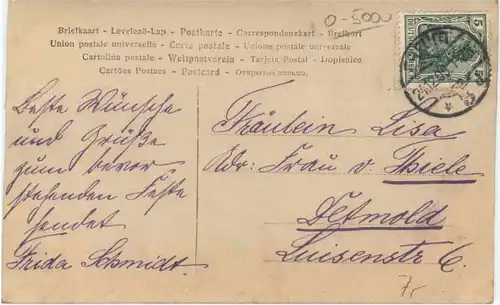 0-5000
Briefkaart - Levelező-Lap - Postkarte - Correspondenzkart - Brefkort
Union postale universelle - Carte postale - Unione postale universale
Cartolina postale - Weltpostverein - Tarjeta Postal - Dopisnice
Cartões Postaes - Postcard - Открытое письмо.
5 5
Beste Wünsche
und Grüße
zum bevor
stehenden Feste
sendet
Frida Schmidt.
Fräulein Lisa
Adr: Frau v. Thiele
Detmold
Luisenstr 6.